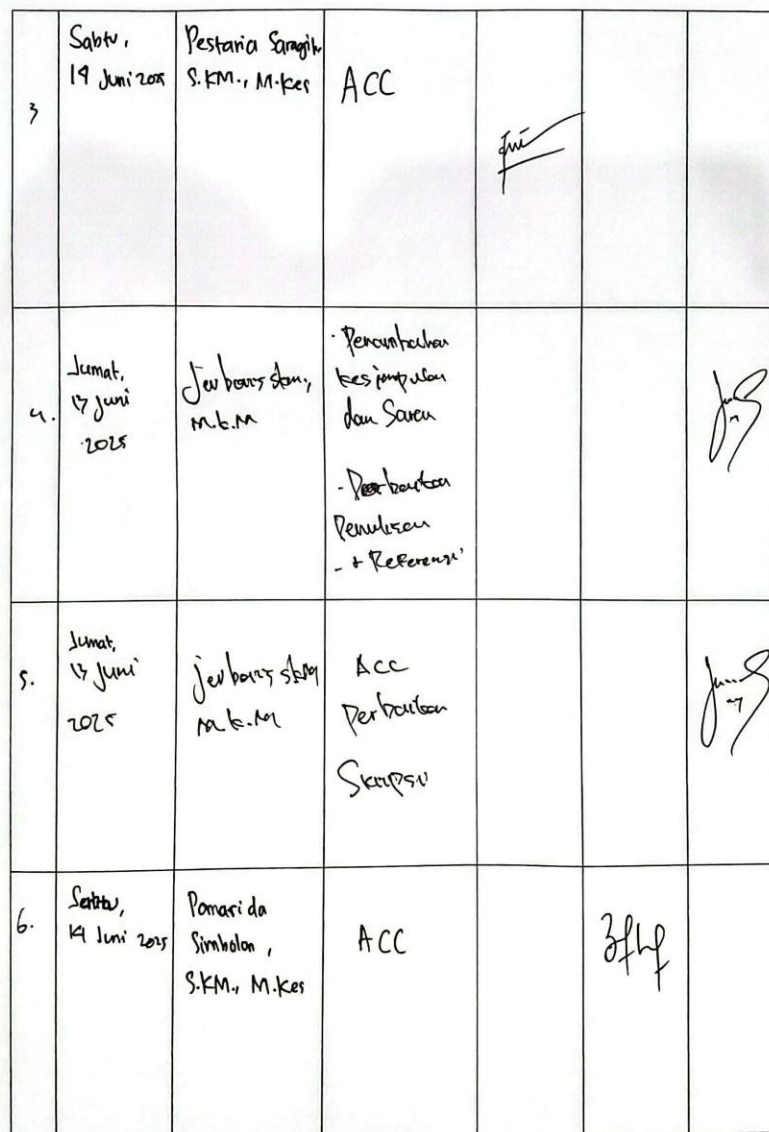 3
Sabtu,
14 Juni 2025
Pestaria Saragih
S.KM., M.Kes
ACC
4.
Jumat,
13 Juni
2025
M.K.M
- Penambahan
kesimpulan
dan Saran
- Perbaikan
Penulisan
- + Referensi
5.
Jumat,
13 Juni
2025
M.K.M
ACC
Perbaikan
Skripsi
6.
Sabtu,
14 Juni 2025
Pomarida
Simbolon,
S.KM., M.Kes
ACC